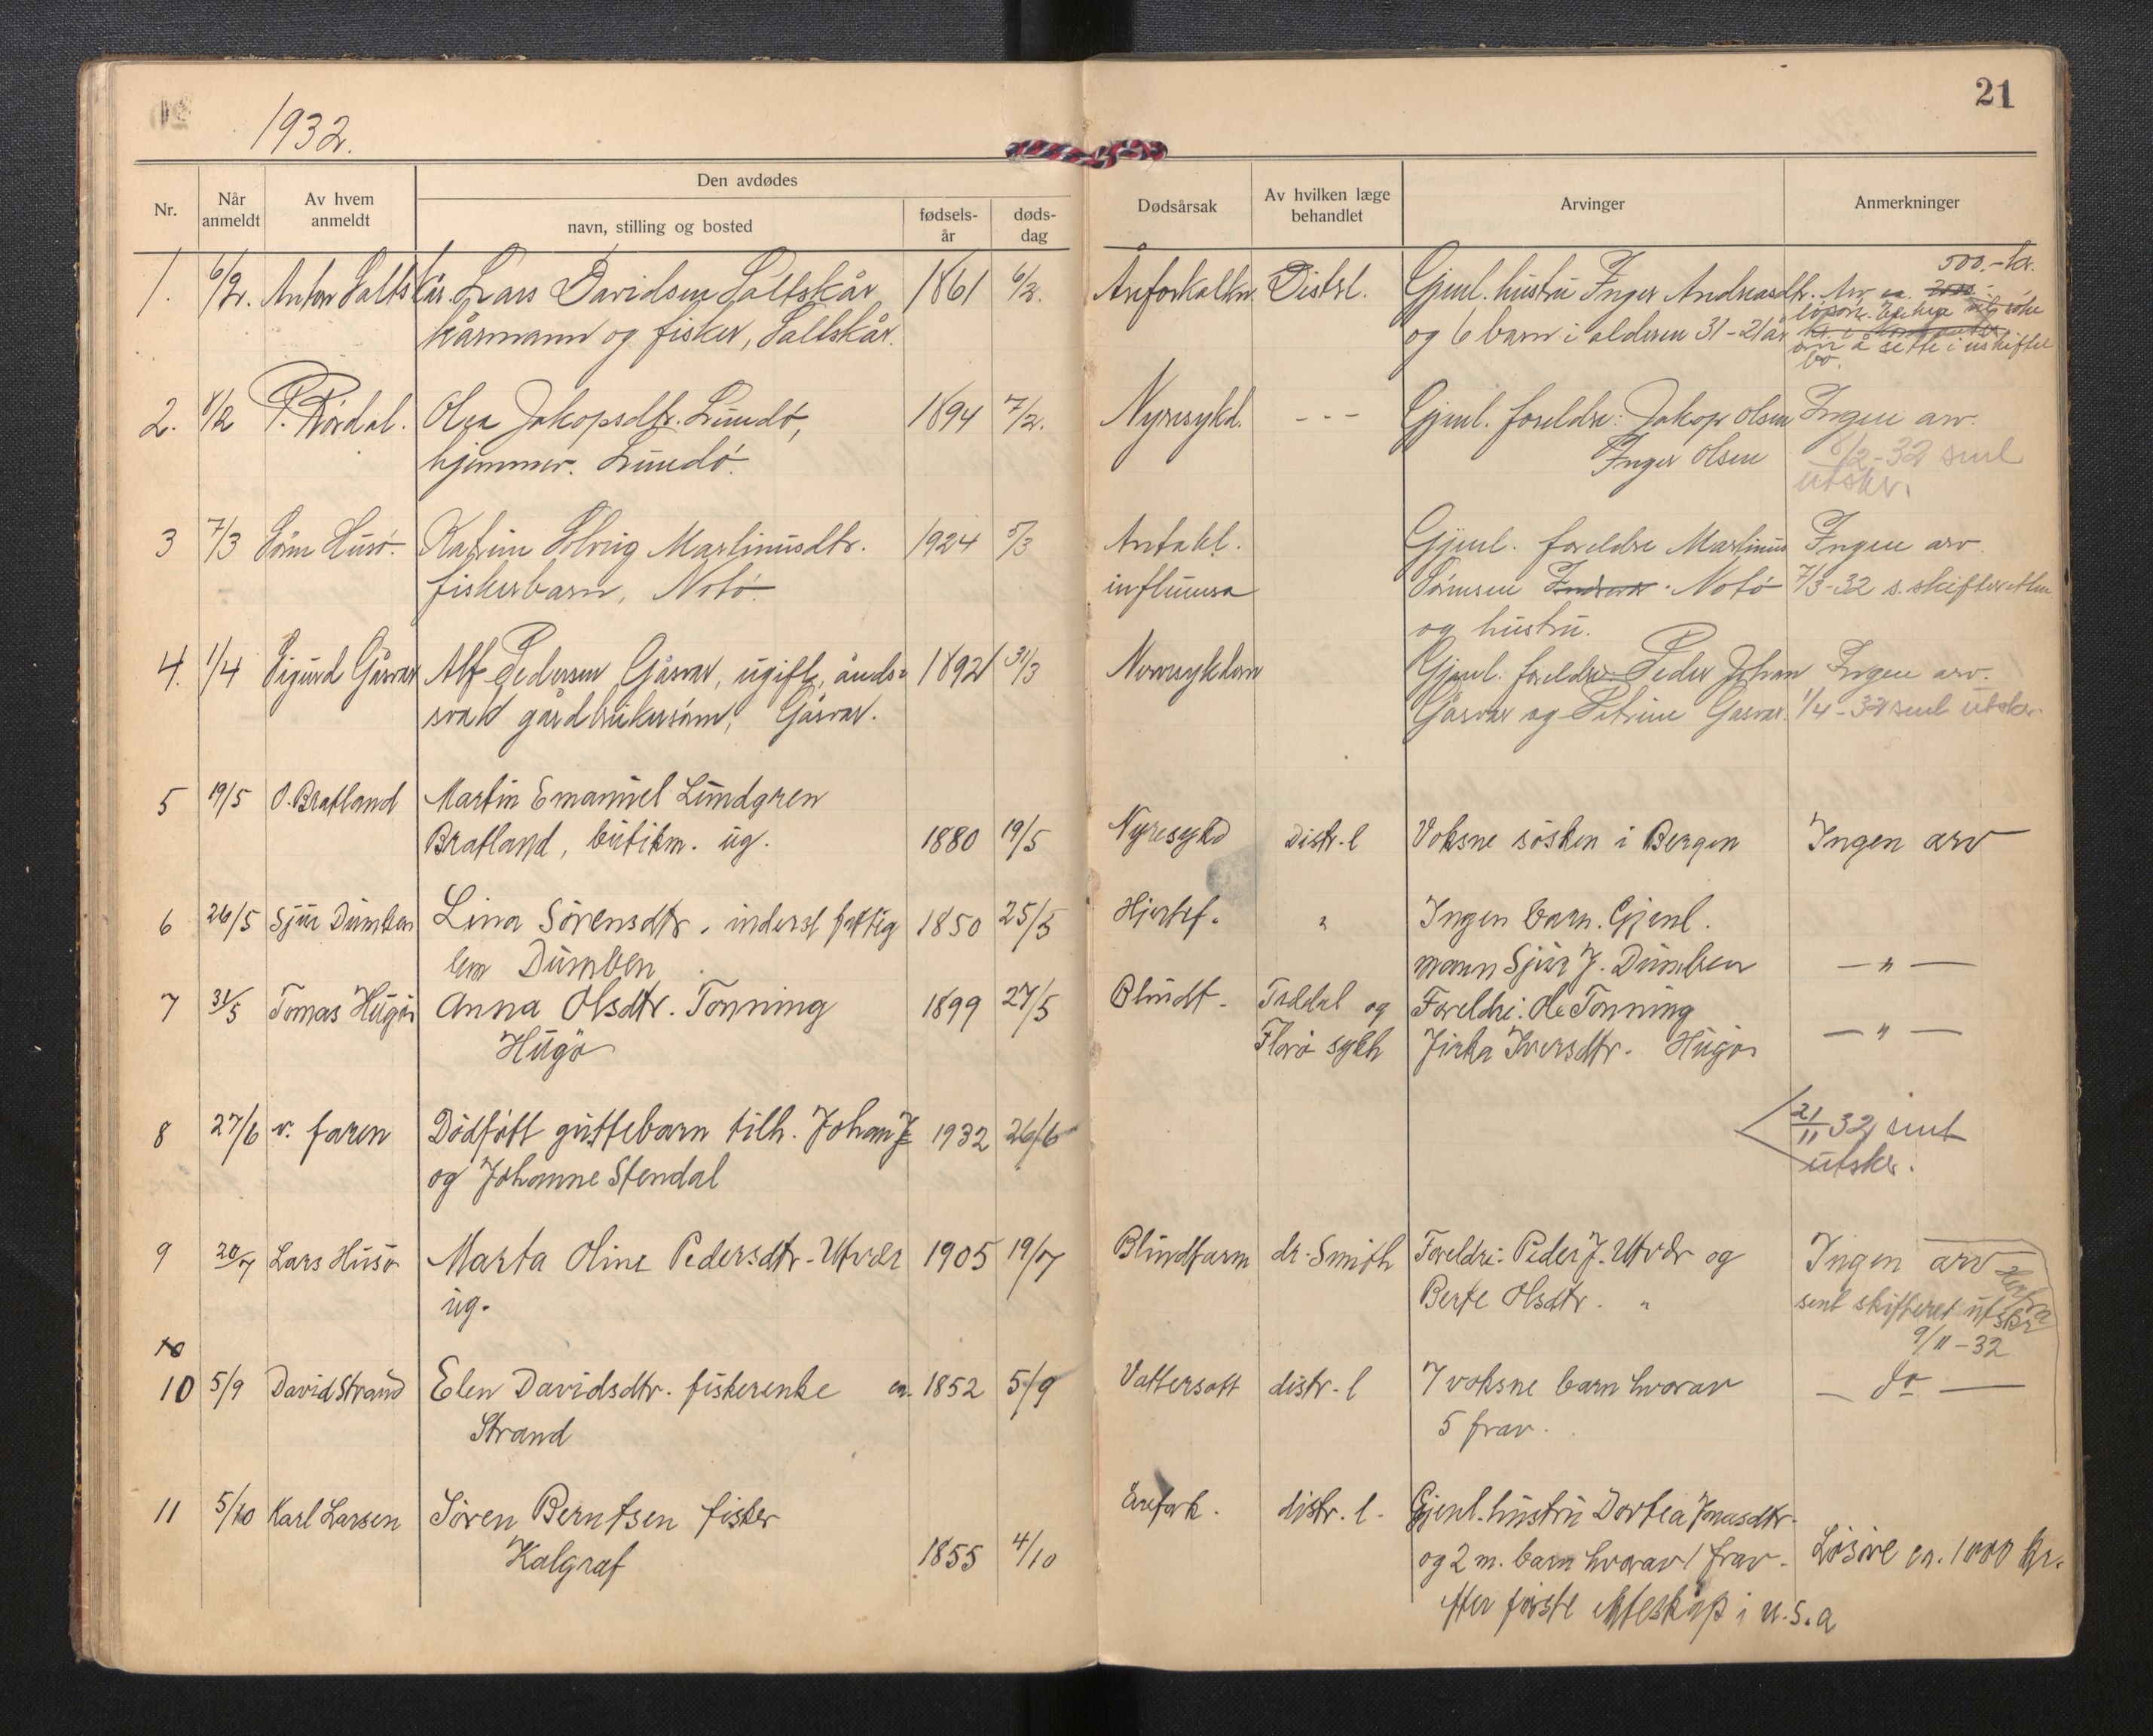 21
1932.
Den avdødes
Nr.
Når anmeldt
Av hvem anmeldt
navn, stilling og bosted
fødsels-år
døds-dag
Dødsårsak
Av hvilken læge behandlet
Arvinger
Anmerkninger
1. 6/2. Anton Saltskår. Lars Davidsen Saltskår 1861 6/2. Åreforkalkn. Distrl. Gjenl. hustru Inger Andreasdtr. Arv ca. 500.- kr.
kårmann og fisker, Saltskår. og 6 barn i alderen 31-21 år løsøre.
om å sitte i uskiftet
bo.
2. 8/2 P. Rørdal. Olea Jakopsdtr. Lundø, 1894 7/2. Nyresykd. - - - Gjenl. foreldre: Jakop Olsen Ingen arv.
hjemmev. Lundø. Inger Olsen 8/2-32 sent
utskr.
3 7/3 Sørn Husø. Katrine Solveig Martinusdtr. 1924 5/3 Antakl. Gjenl. foreldre Martinus Ingen arv.
fiskerbarn, Notø. influensa Sørensen Notø 7/3-32 s. skifteretten
og hustru.
4. 1/4 Sigurd Gåsvær Alf Pedersen Gåsvær, ugift, ånds- 1892 31/3 Nervesykdom Gjenl. foreldre Peder Johan Ingen arv.
svak gårdbrukersønn, Gåsvær. Gåsvær og Petrine Gåsvær. 1/4-32 sent utskr.
5 19/5 O. Bratland Martin Emanuel Lundgren
Bratland, butikm. ug. 1880 19/5 Nyresykd Distr. l Voksne søsken i Bergen Ingen arv
6 26/5 Sjur Dumben Lina Sørensdtr. inderst fattig 1850 25/5 Hjertef. " Ingen barn. Gjenl.
lem Dumben mann Sjur J. Dumben — " —
7 31/5 Tomas Hugøy Anna Olsdtr. Tonning 1899 27/5 Blindt. og Foreldre: Ole Tonning
Hugøy Florø sykh Iversdtr. Hugøy — " —
8 27/6 v. faren Dødfødt guttebarn tilh. Johan J 1932 26/6 21/11 32 sent
og Johanne Stendal utskr.
9 20/7 Lars Husø Marta Oline Pedersdtr. Utvær 1905 19/7 Blindtarm dr. Smith Foreldre: Peder J. Utvær og Ingen arv
ug. Berte Olsdtr. " sent skifteret utskr
9/11-32
10
10 5/9 David Strand Elen Davidsdtr. fiskerenke ca. 1852 5/9 Vattersott distr. l 7 voksne barn hvorav — do —
Strand 5 frav.
11 5/10 Karl Larsen Søren Berntsen fisker distr. l. Gjenl. hustru Dortea Jonasdtr.
Kalgraf 1855 4/10 og 2 m. barn hvorav 1 frav. Løsøre ca. 1000 kr.
efter første ekteskap i U.S.A